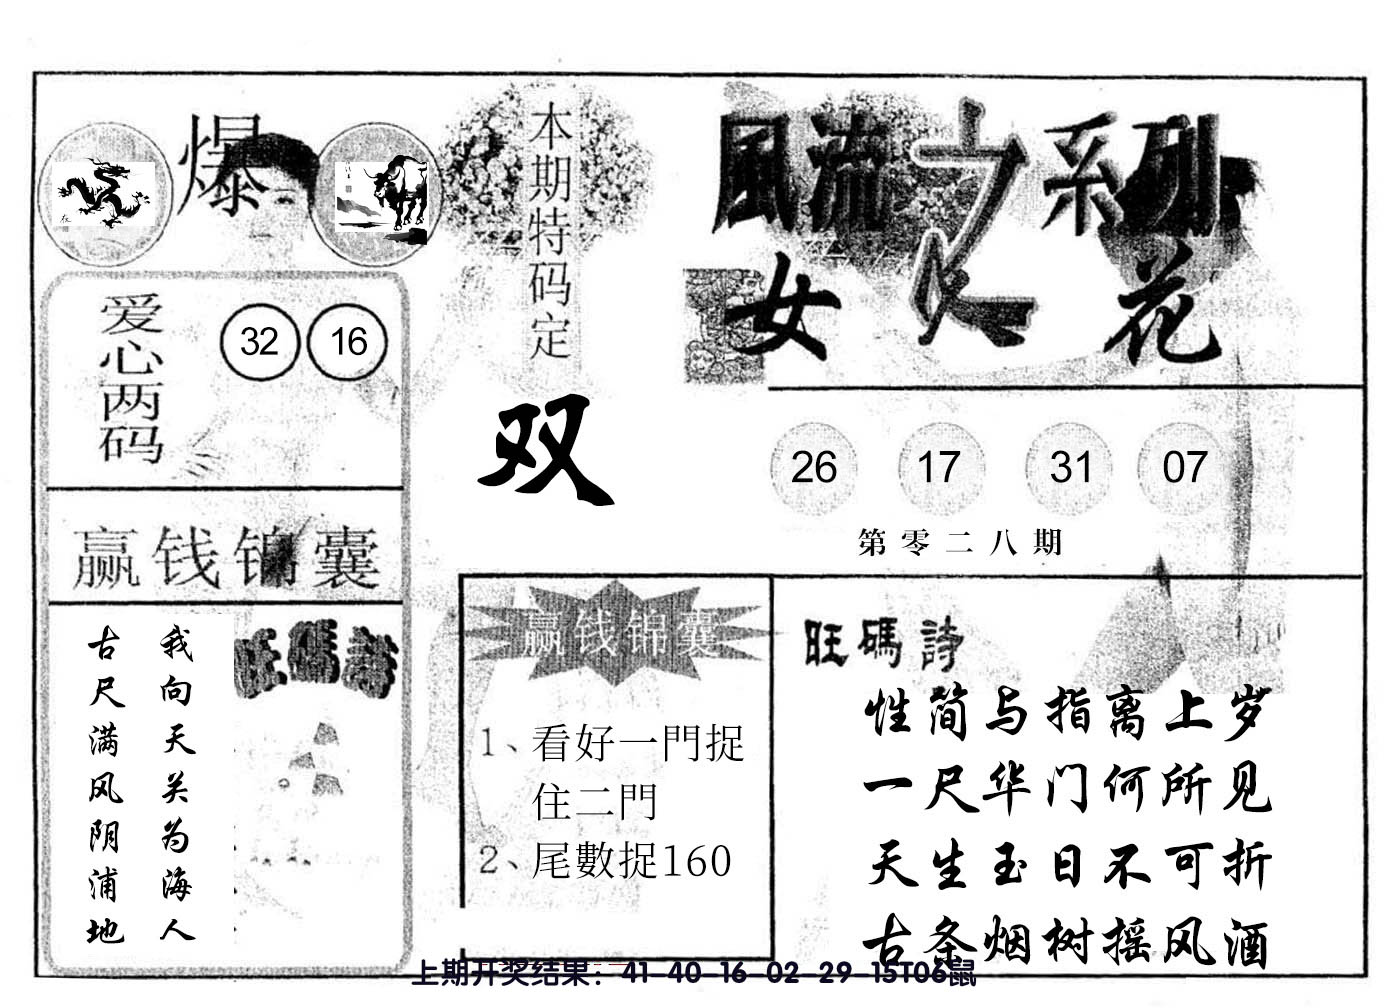 爆
爱心两码
32 16
赢钱锦囊
我向天关为海人
古尺满风阴浦地
旺碼詩
本期特码定
双
赢钱锦囊
1、看好一門捉
住二門
2、尾數捉160
風流之系列
女人花
26 17 31 07
第零二八期
旺碼詩
性简与指离上岁
一尺华门何所见
天生玉日不可折
古条烟树摇风酒
上期开奖结果：41-40-16-02-29-15T06鼠